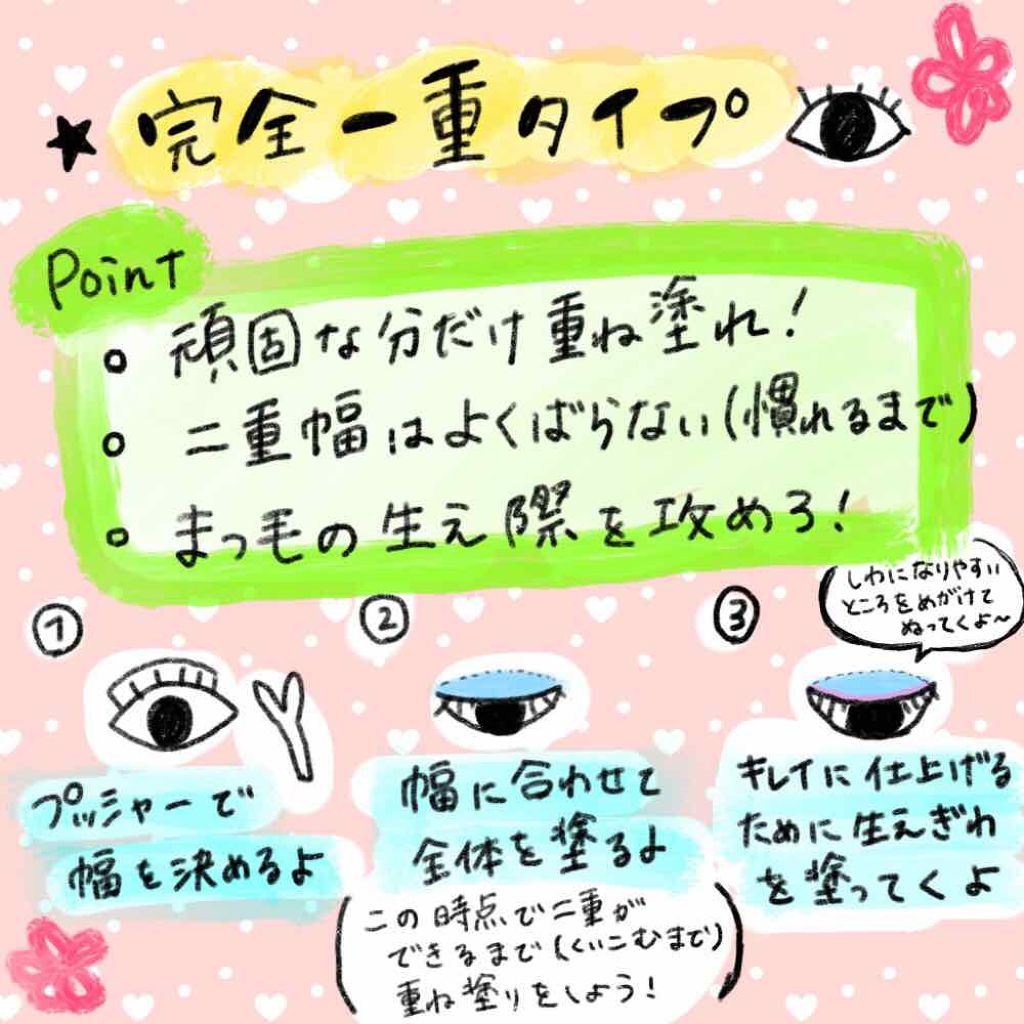 ★完全一重タイプ
Point
• 頑固な分だけ重ね塗れ!
• 二重幅はよくばらない(慣れるまで)
• まつ毛の生え際を攻めろ!
①
プッシャーで
幅を決めるよ
②
幅に合わせて
全体を塗るよ
(この時点で二重が
できるまで(くいこむまで)
重ね塗りをしよう!)
③
しわになりやすい
ところをめがけて
ぬってくよ~
キレイに仕上げる
ために生えぎわ
を塗ってくよ